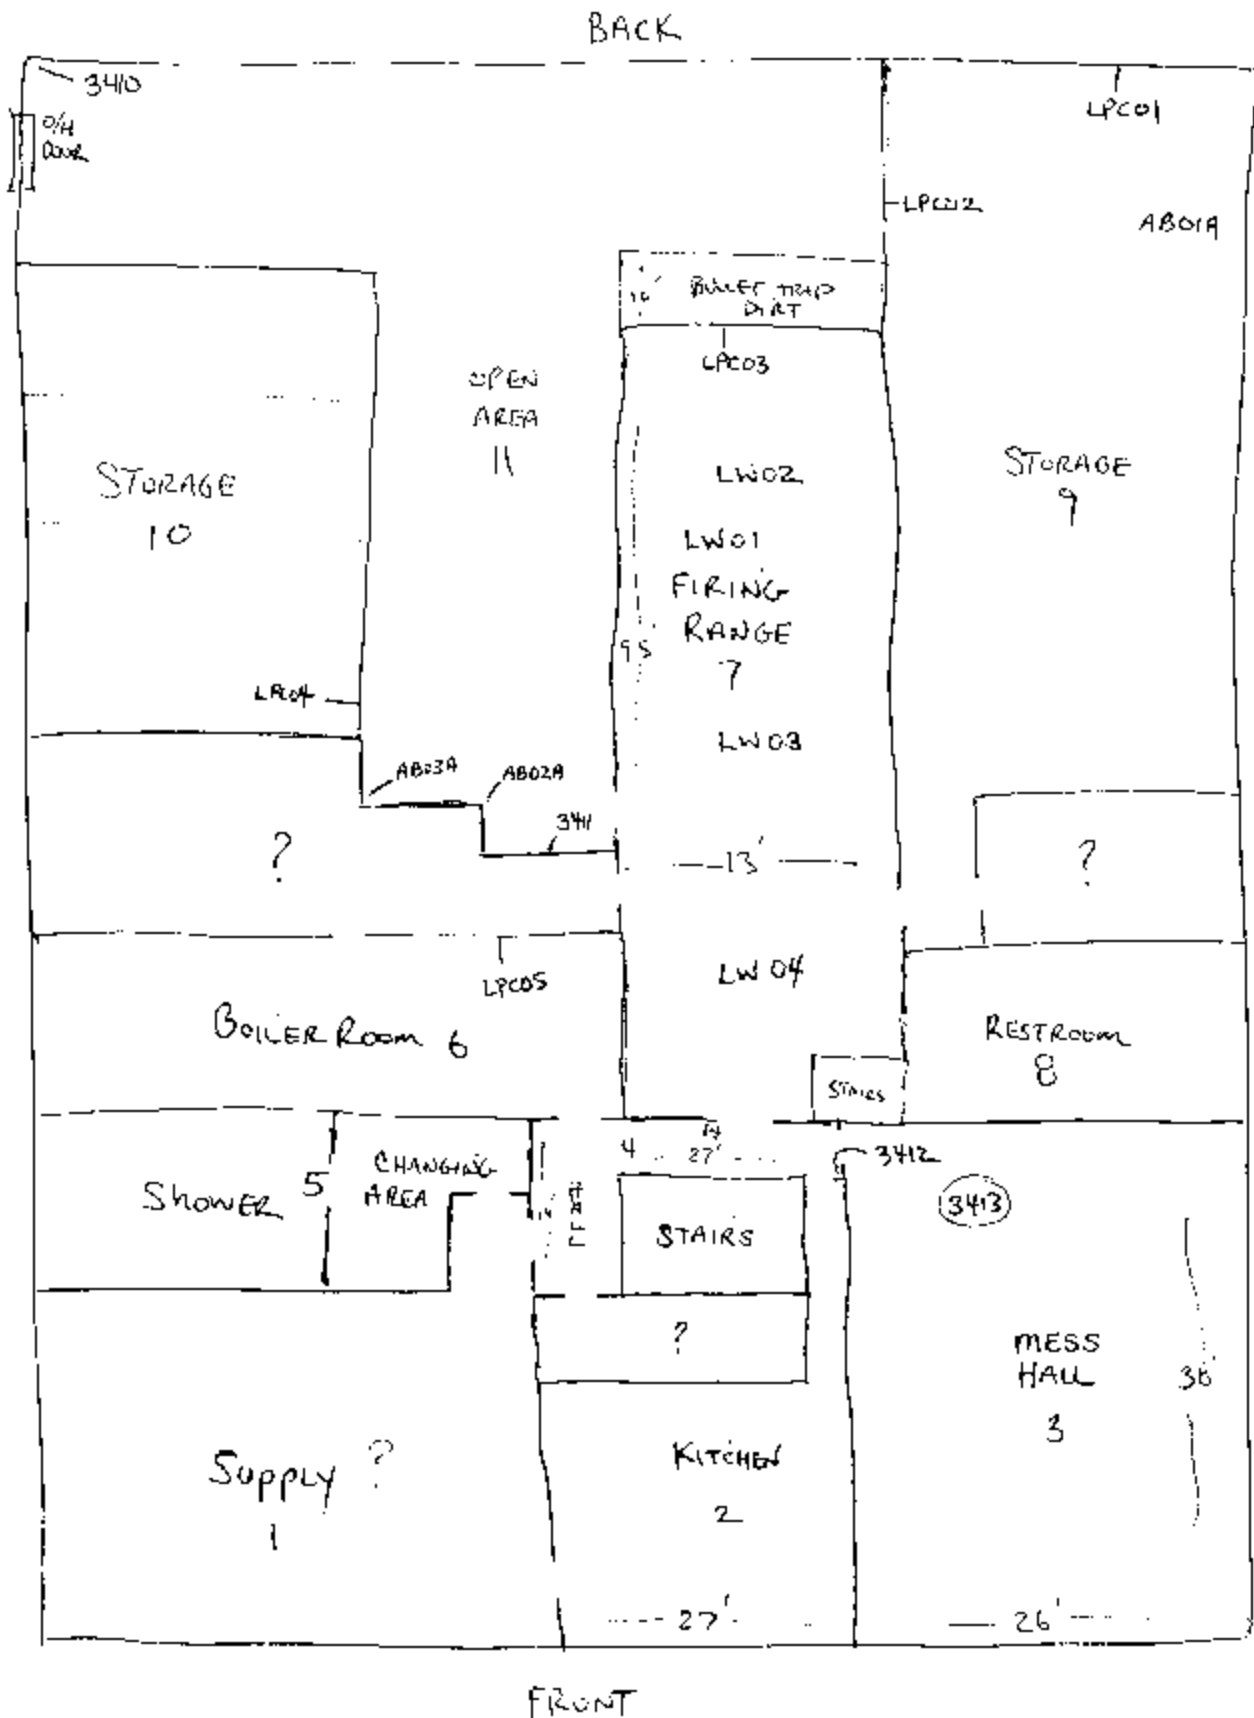 BACK
3410
LPC01
O/H
DOOR
LPC02
AB01A
BULLET TRAP
DIRT
LPC03
OPEN
AREA
11
LW02
STORAGE
9
STORAGE
10
LW01
FIRING
RANGE
7
95'
LPC04
LW03
AB03A
AB02A
3411
?
13'
?
LPC05
LW04
BOILER ROOM 6
RESTROOM
8
STAIRS
4
27'
3412
SHOWER
5
CHANGING
AREA
HALL
STAIRS
3413
?
MESS
HALL
3
36'
SUPPLY ?
1
KITCHEN
2
27'
26'
FRONT